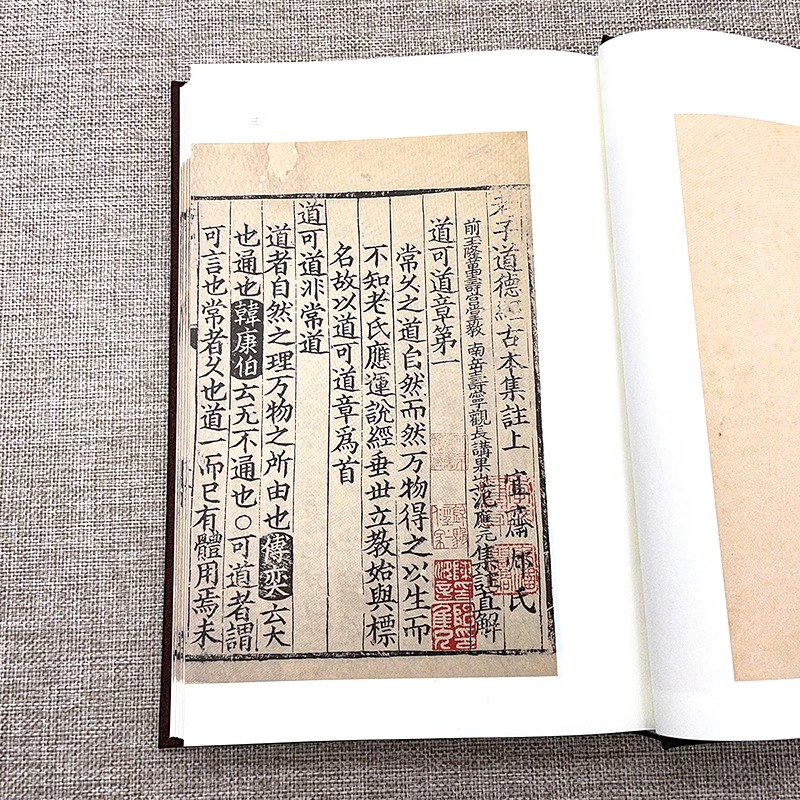 老子道德經古本集註上 宜齋邴氏
前玉隆萬壽宮掌教 南岳壽寧觀長講果山范應元集註直解
道可道章第一
常久之道自然而然万物得之以生而
不知老氏應運說經垂世立教始與標
名故以道可道章爲首
道可道非常道
道者自然之理万物之所由也傅奕云大
也通也韓康伯云无不通也○可道者謂
可言也常者久也道一而已有體用焉未